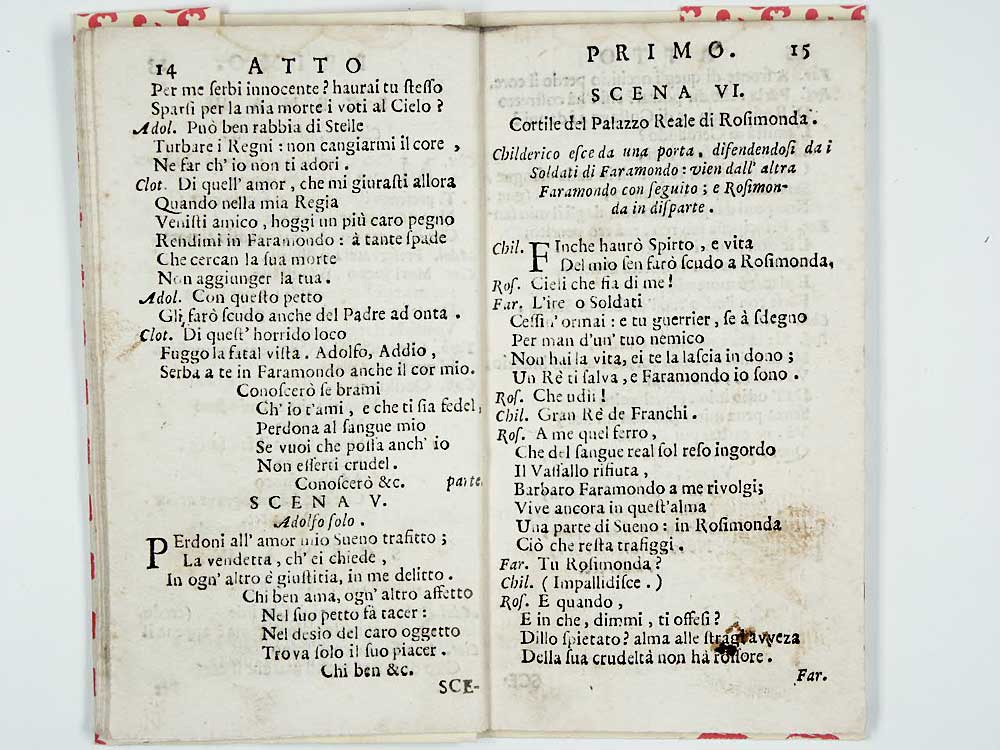 14 ATTO
Per me ſerbi innocente? haurai tu ſteſſo
Sparſi per la mia morte i voti al Cielo?
Adol. Può ben rabbia di Stelle
Turbare i Regni: non cangiarmi il core,
Ne far ch' io non ti adori.
Clot. Di quell' amor, che mi giuraſti allora
Quando nella mia Regia
Veniſti amico, hoggi un più caro pegno
Rendimi in Faramondo: à tante ſpade
Che cercan la ſua morte
Non aggiunger la tua.
Adol. Con queſto petto
Gli farò ſcudo anche del Padre ad onta.
Clot. Di queſt' horrido loco
Fuggo la fatal viſta. Adolfo, Addio,
Serba a te in Faramondo anche il cor mio.
Conoſcerò ſe brami
Ch' io t'ami, e che ti ſia fedel,
Perdona al ſangue mio
Se vuoi che poſſa anch' io
Non eſſerti crudel.
Conoſcerò &c. parte
SCENA V.
Adolfo ſolo.
PErdoni all' amor mio Sueno trafitto;
La vendetta, ch' ei chiede,
In ogn' altro è giuſtitia, in me delitto.
Chi ben ama, ogn' altro affetto
Nel ſuo petto fà tacer:
Nel deſio del caro oggetto
Trova ſolo il ſuo piacer.
Chi ben &c.
SCE-
PRIMO. 15
SCENA VI.
Cortile del Palazzo Reale di Roſimonda.
Childerico eſce da una porta, difendendoſi dai
Soldati di Faramondo: vien dall' altra
Faramondo con ſeguito; e Roſimon-
da in diſparte.
Chil. FInche haurò Spirto, e vita
Del mio ſen farò ſcudo a Roſimonda,
Roſ. Cieli che fia di me!
Far. L'ire o Soldati
Ceſſin' ormai: e tu guerrier, ſe à ſdegno
Per man d'un' tuo nemico
Non hai la vita, ei te la laſcia in dono;
Un Rè ti ſalva, e Faramondo io ſono.
Roſ. Che udii!
Chil. Gran Rè de Franchi.
Roſ. A me quel ferro,
Che del ſangue real ſol reſo ingordo
Il Vaſſallo rifiuta,
Barbaro Faramondo a me rivolgi;
Vive ancora in queſt'alma
Una parte di Sueno: in Roſimonda
Ciò che reſta trafiggi.
Far. Tu Roſimonda?
Chil. (Impallidiſce.)
Roſ. E quando,
E in che, dimmi, ti offeſi?
Dillo ſpietato? alma alle ſtragi avveza
Della ſua crudeltà non hà roſſore.
Far.